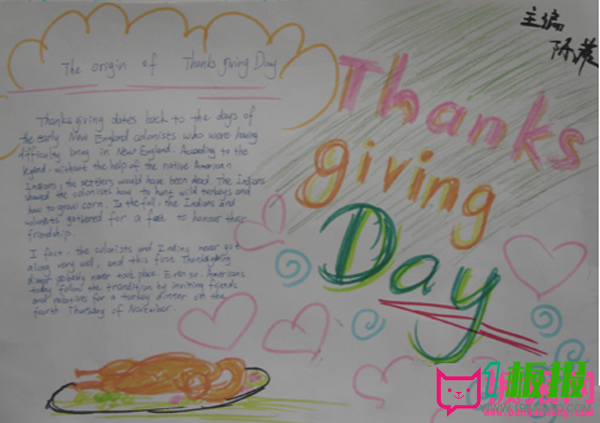 主编
陈
The origin of Thanksgiving Day
Thanks
giving
Day
Thanksgiving dates back to the days of
the early New England colonists who were having
difficulty in New England. According to the
legend, without the help of the native American
Indians, the settlers would have been dead. The Indians
showed the colonists how to hunt wild turkeys and
how to grow corn. In the fall, the Indians and
colonists gathered for a to honour their
friendship.
I fact, the colonists and Indians never got
along very well, and this first Thanksgiving
dinner never took place. Even so, Americans
today follow the by inviting friends
and relatives for a turkey dinner on the
fourth Thursday of November.
1板报